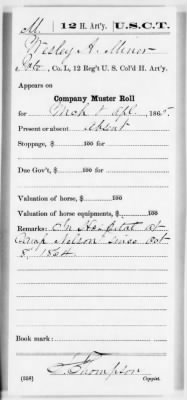 M. | 12 H. Art'y. | U.S.C.T.
Wesley A. Minor
Pvt., Co. L, 12 Reg't U. S. Col'd H. Art'y.
Appears on
Company Muster Roll
for Mch & Apl, 1865.
Present or absent Absent
Stoppage, $ 100 for
Due Gov't, $ 100 for
Valuation of horse, $ 100
Valuation of horse equipments, $ 100
Remarks: In Hospital at
Camp Nelson since Oct
8, 1864.
Book mark:
Thompson
(358) Copyist.